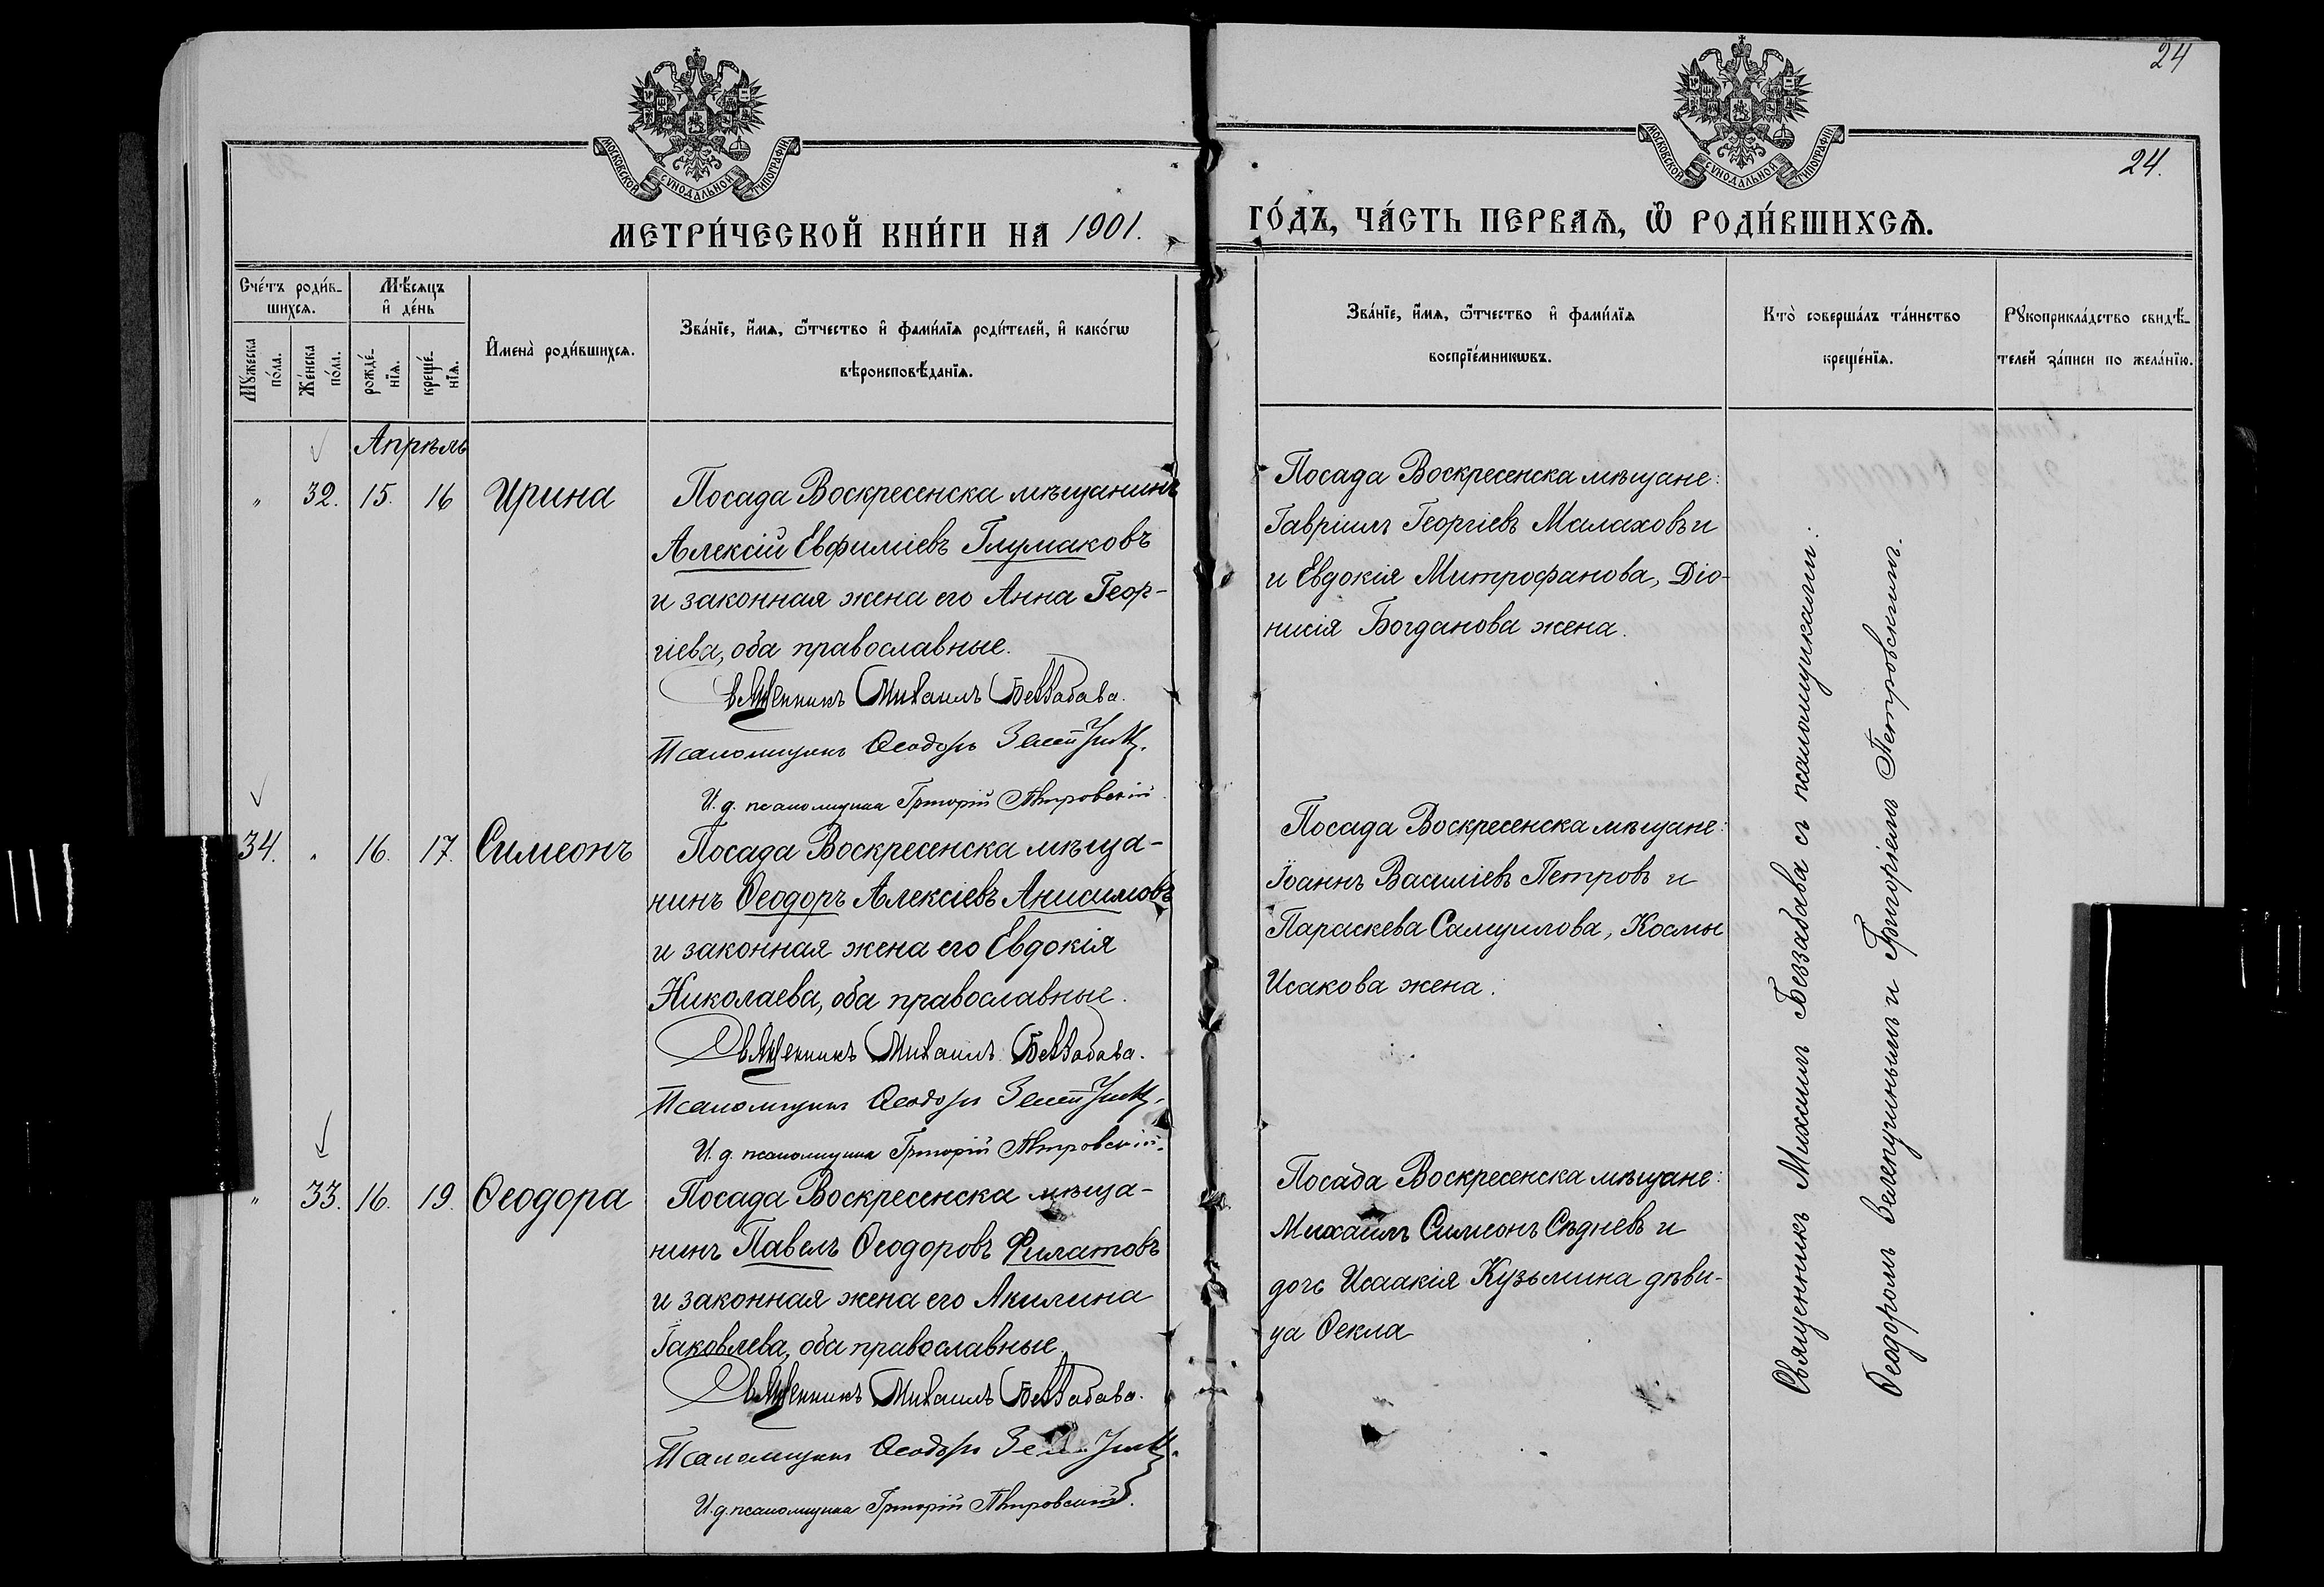 24
МОСКОВСКОЙ СѴНОДАЛЬНОЙ ТИПОГРАФІИ
МОСКОВСКОЙ СѴНОДАЛЬНОЙ ТИПОГРАФІИ
24.
МЕТРИ́ЧЕСКОЙ КНИ́ГИ НА 1901. ГО́ДЪ, ЧА́СТЬ ПЕРВАѦ, Ѿ РОДИ́ВШИХСѦ.
Сче́тъ роди́в-
шихсѧ.
Мꙋ́жеска
по́ла.
Же́нска
по́ла.
Мѣ́сѧцъ
и҆ де́нь
рожде́-
нїѧ.
креще́-
нїѧ.
И҆мена̀ роди́вшихсѧ.
Зва́нїе, и҆́мѧ, ѻ҆́тчество и҆ фами́лїѧ роди́телей, и҆ како́гѡ
вѣроисповѣ́данїѧ.
Зва́нїе, и҆́мѧ, ѻ҆́тчество и҆ фами́лїѧ
воспрїе́мникѡвъ.
Кто̀ соверша́лъ та́инство
креще́нїѧ.
Рꙋкоприкла́дство свидѣ́-
телей за́писи по жела́нїю.
Апрѣль
" 32. 15. 16 Ирина
Посада Воскресенска мѣщанинъ
Алексій Евфиміевъ Глумаковъ
и законная жена его Анна Геор-
гіева, оба православные.
Священникъ Михаилъ Беззабава.
Псаломщикъ Ѳеодоръ
И. д. псаломщика Григорій Петровскій
Посада Воскресенска мѣщане:
Гавріилъ Георгіевъ Малаховъ и
и Евдокія Митрофанова, Діо-
нисія Богданова жена.
34. " 16. 17. Симеонъ
Посада Воскресенска мѣща-
нинъ Ѳеодоръ Алексіевъ Анисимовъ
и законная жена его Евдокія
Николаева, оба православные.
Священникъ Михаилъ Беззабава.
Псаломщикъ Ѳеодоръ
И. д. псаломщика Григорій Петровскій.
Посада Воскресенска мѣщане:
Іоаннъ Василіевъ Петровъ и
Параскева Самуилова, Космы
Исакова жена.
" 33. 16. 19. Ѳеодора
Посада Воскресенска мѣща-
нинъ Павелъ Ѳеодоровъ Филатовъ
и законная жена его Акилина
Іаковлева, оба православные.
Священникъ Михаилъ Беззабава.
Псаломщикъ Ѳеодоръ
И. д. псаломщика Григорій Петровскій.
Посада Воскресенска мѣщане:
Михаилъ Симеонъ Сѣдневъ и
дочь Исаакія Кузьмина дѣви-
ца Ѳекла
Священникъ Михаилъ Беззабава съ псаломщиками:
Ѳеодоромъ и Григоріемъ Петровскимъ.